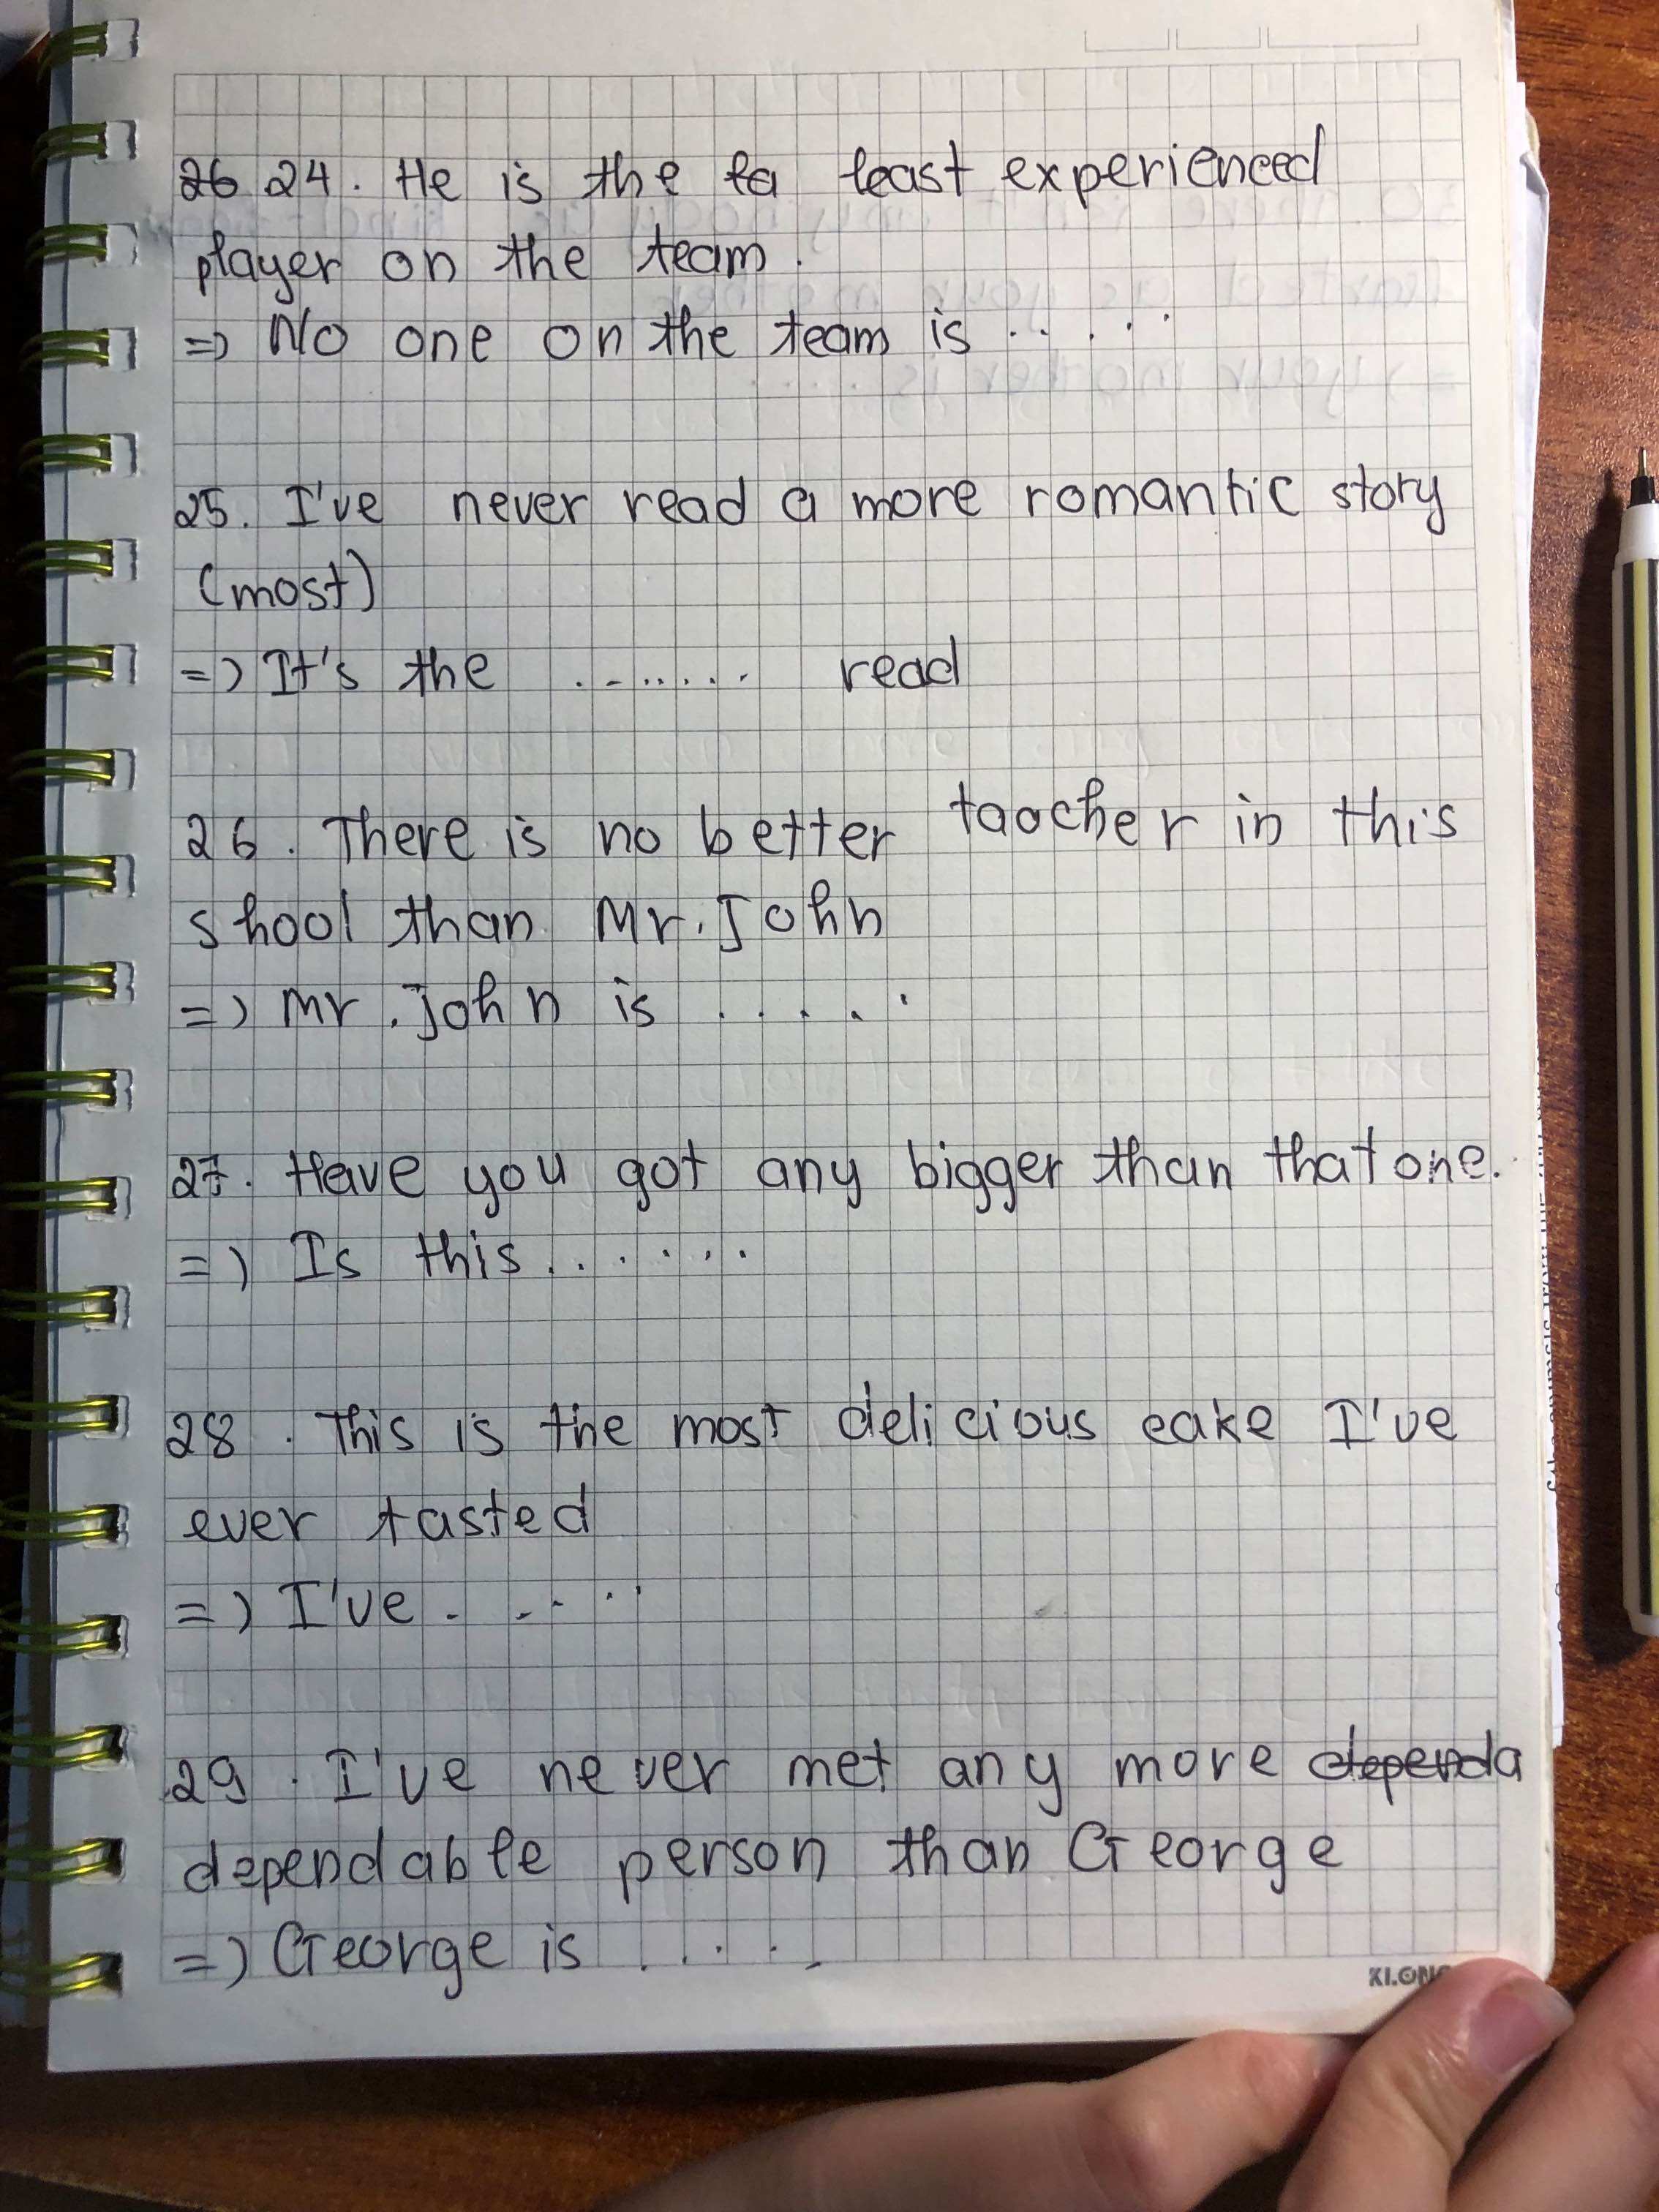 26 24. He is the la least experienced
player on the team.
=> No one on the team is .....
25. I've never read a more romantic story
(most)
=> It's the ........ read
26. There is no better taocher in this
shool than Mr. John
=> Mr. John is .....
27. Have you got any bigger than that one.
=> Is this.......
28. This is the most delicious cake I've
ever tasted
=> I've.....
29. I've never met any more dependa
dependable person than George
=> George is ....